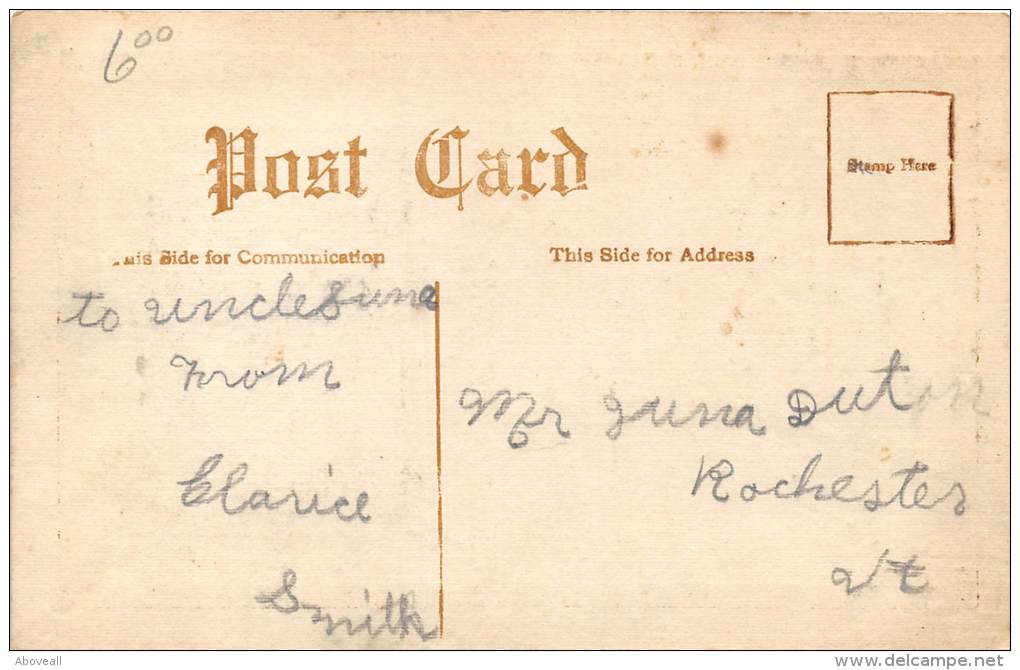 6⁰⁰
Post Card
Stamp Here
This Side for Communication
This Side for Address
to uncle
From
Clarice
Smith
Mr Juna Duton
Rochester
Vt
Aboveall
www.delcampe.net